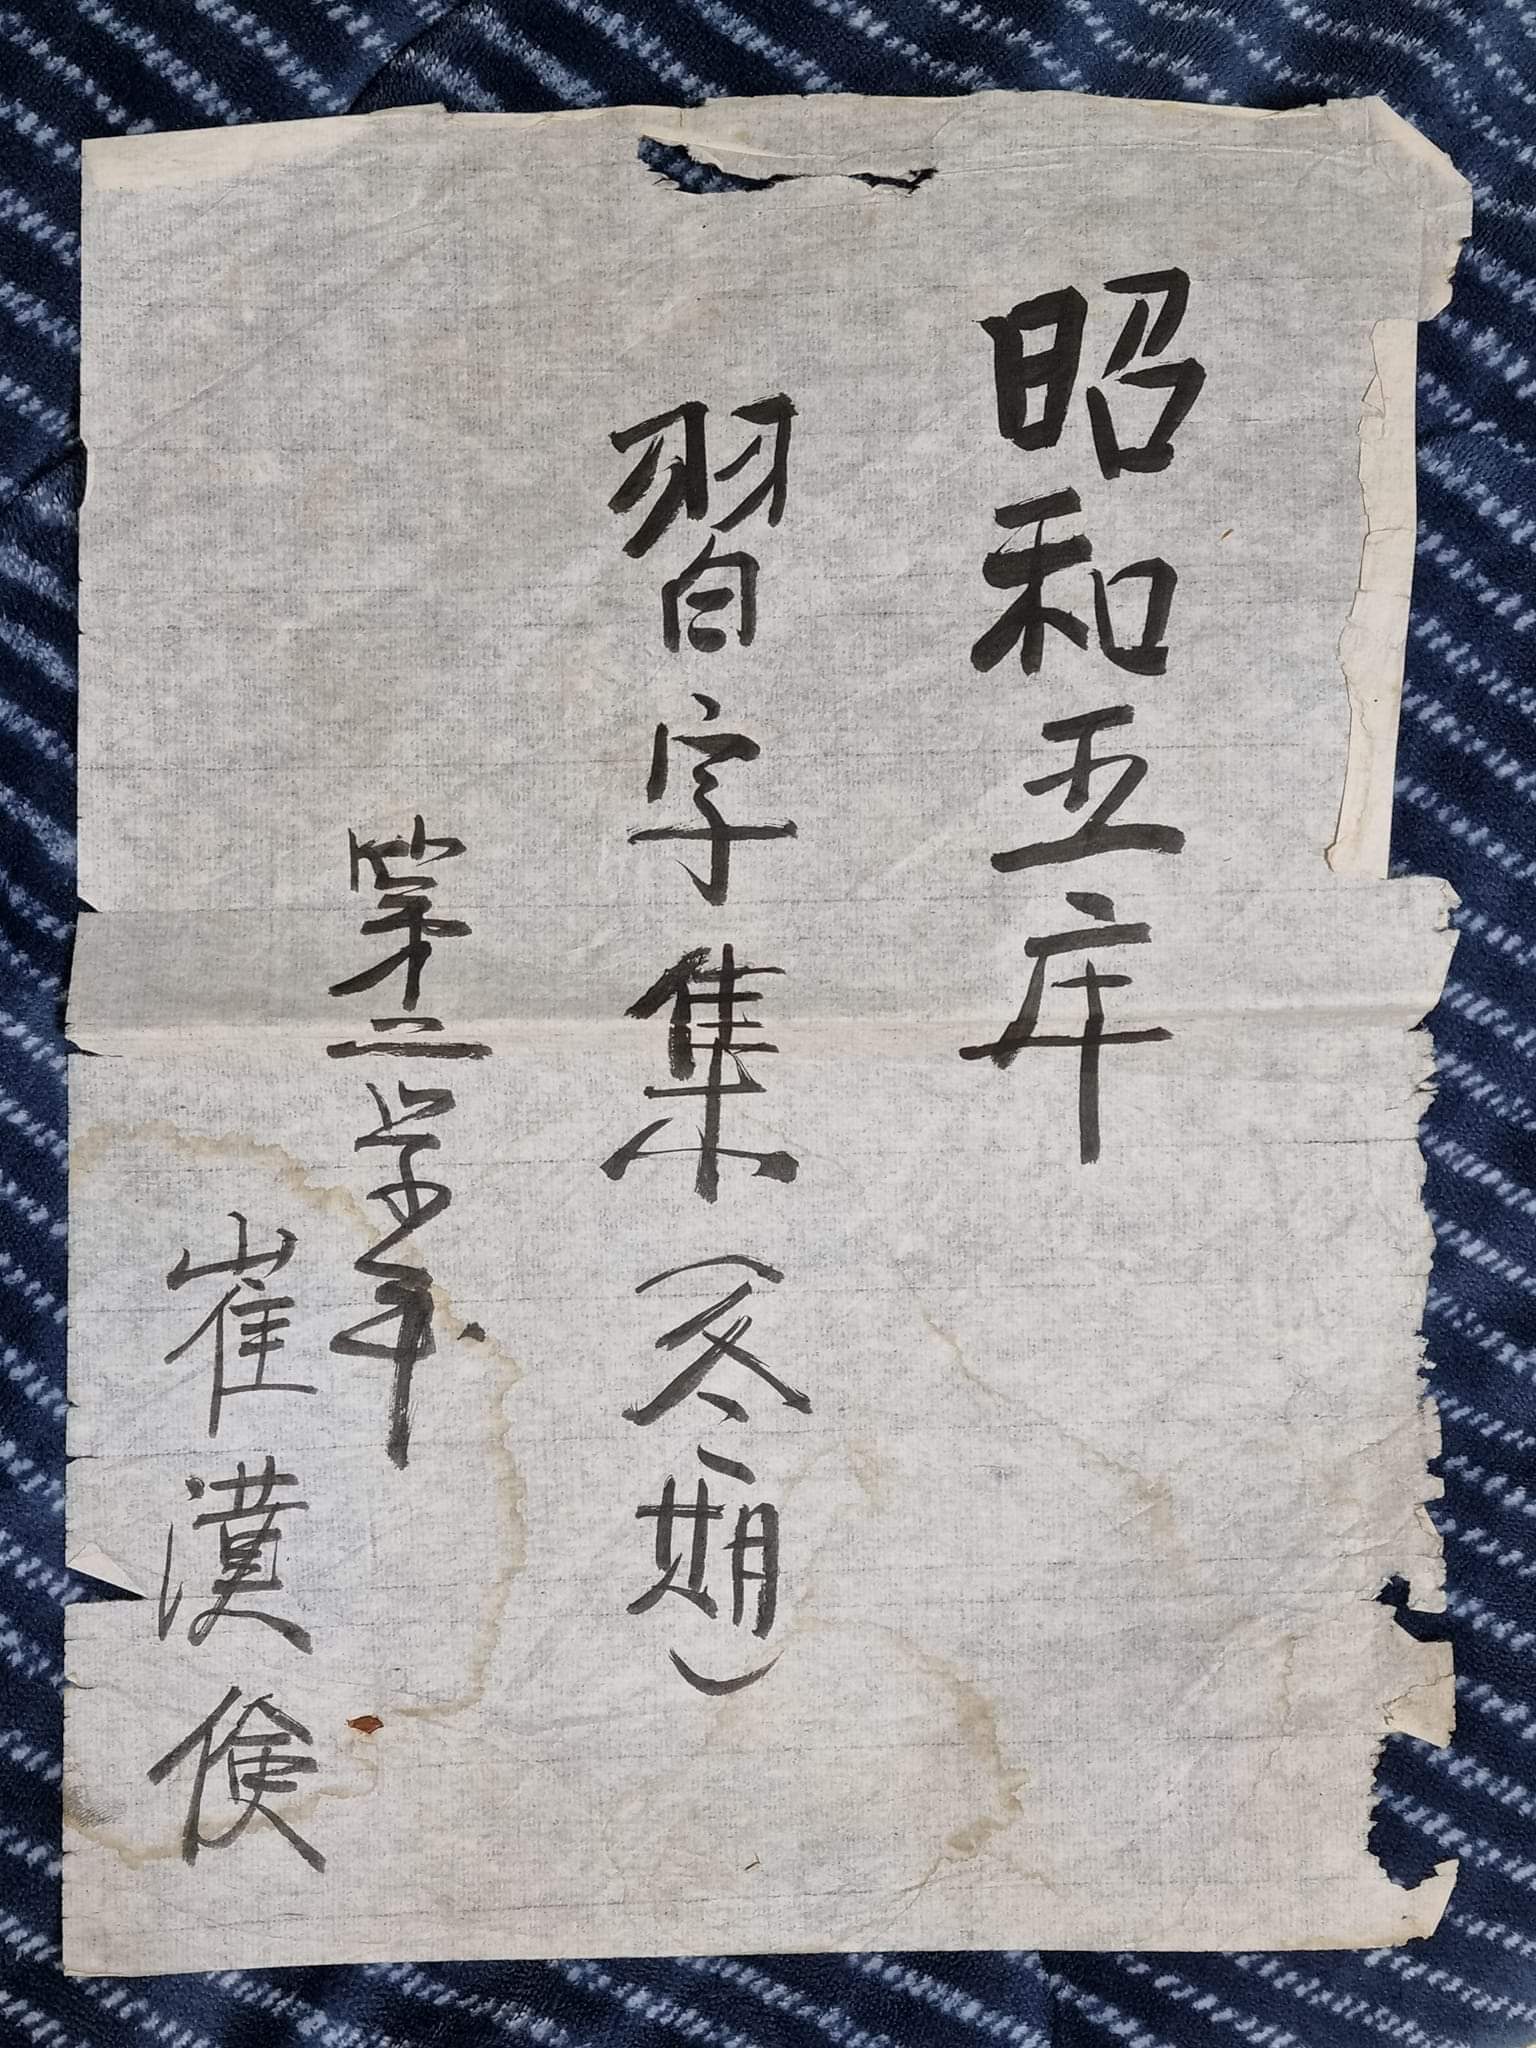 昭和五年
習字集（冬期）
第二学年
崔漢俊